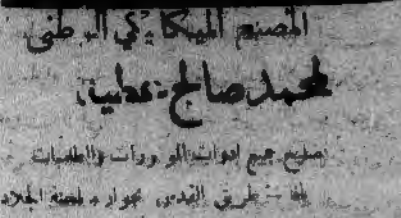 المصنع الميكانيكي الوطني
لمحمد صالح عطيه
تصليح جميع ادوات الموتورات والطلمبات
يافا - طريق القدس بجوار